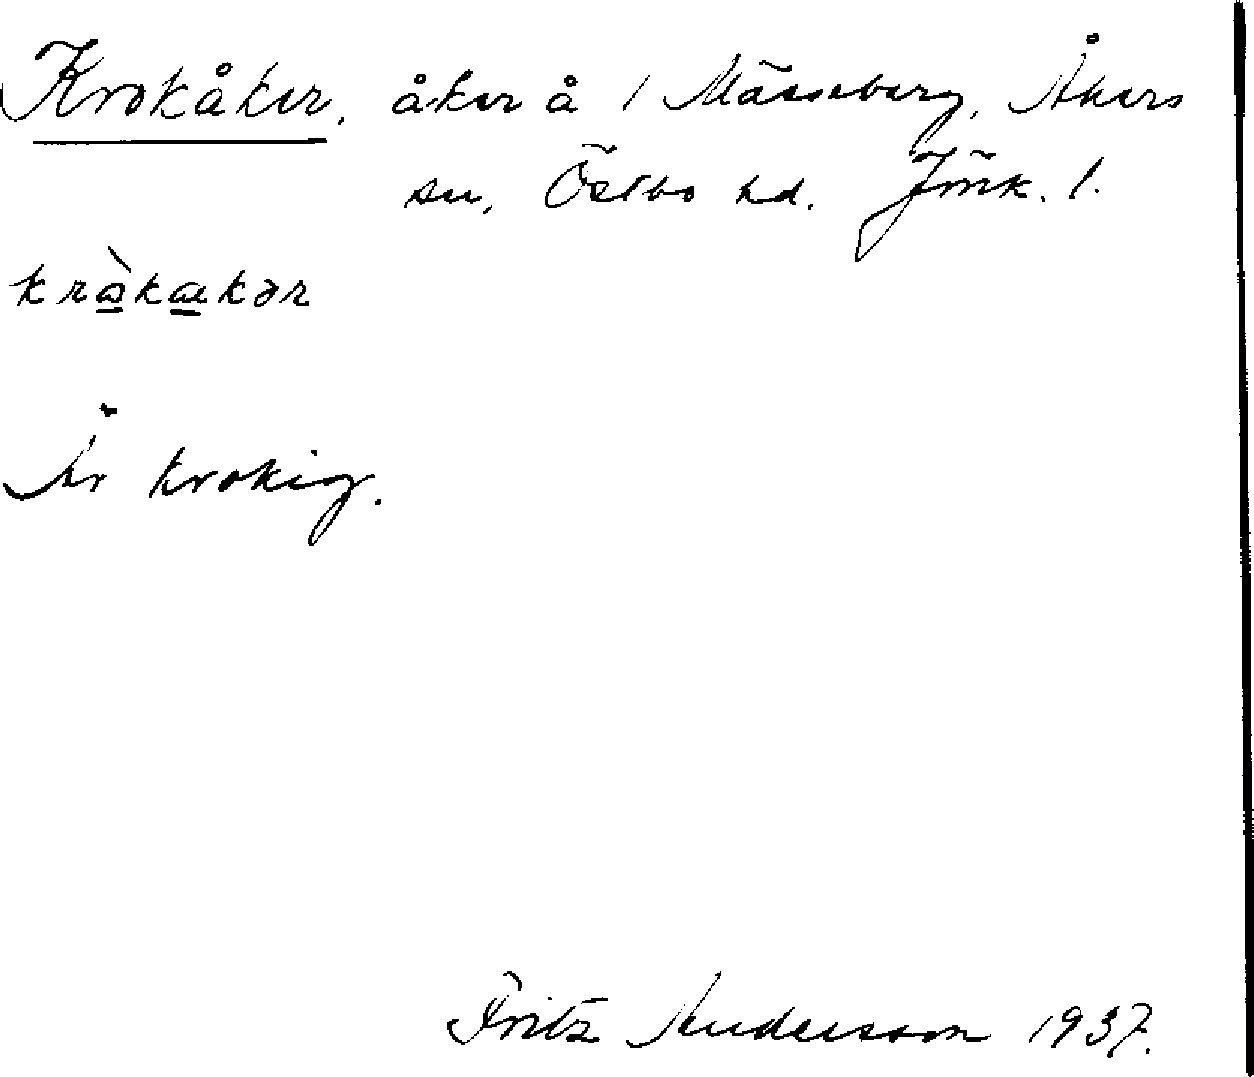 Krokåker, åker å 1 Mässeberg, Åkers
sn, Östbo hd. Jmk. l.
kràkakər
Är krokig.
Fritz Andersson 1937.